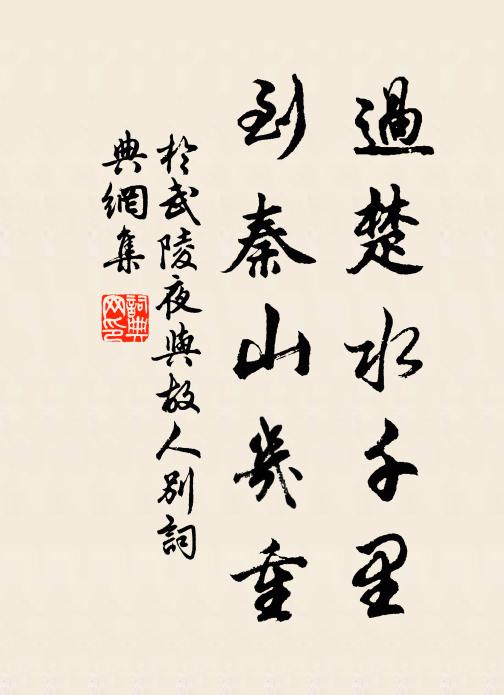 過楚水千里
到秦山幾重
於武陵夜與故人別詞
典網集
詞典
网印